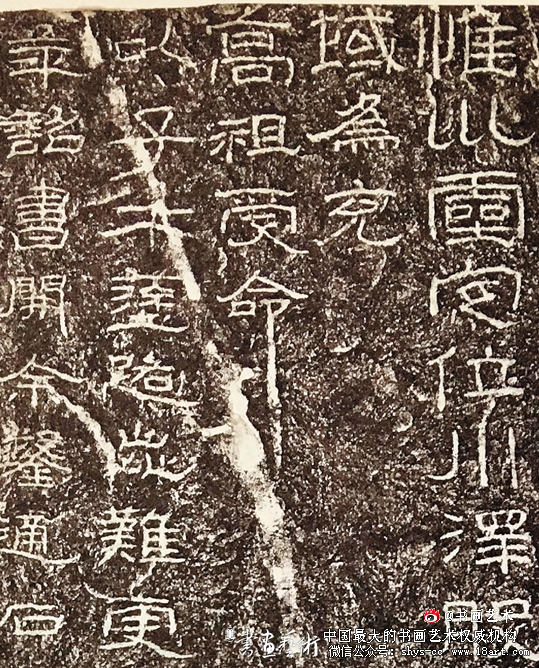 惟巛靈定位川澤
域為充
高祖受命
以子午塗路歰難更
年詔書開余鑿通石
@书画艺术
中国最大的书画艺术权威机构
微信公众号:shys-cc www.18art.com